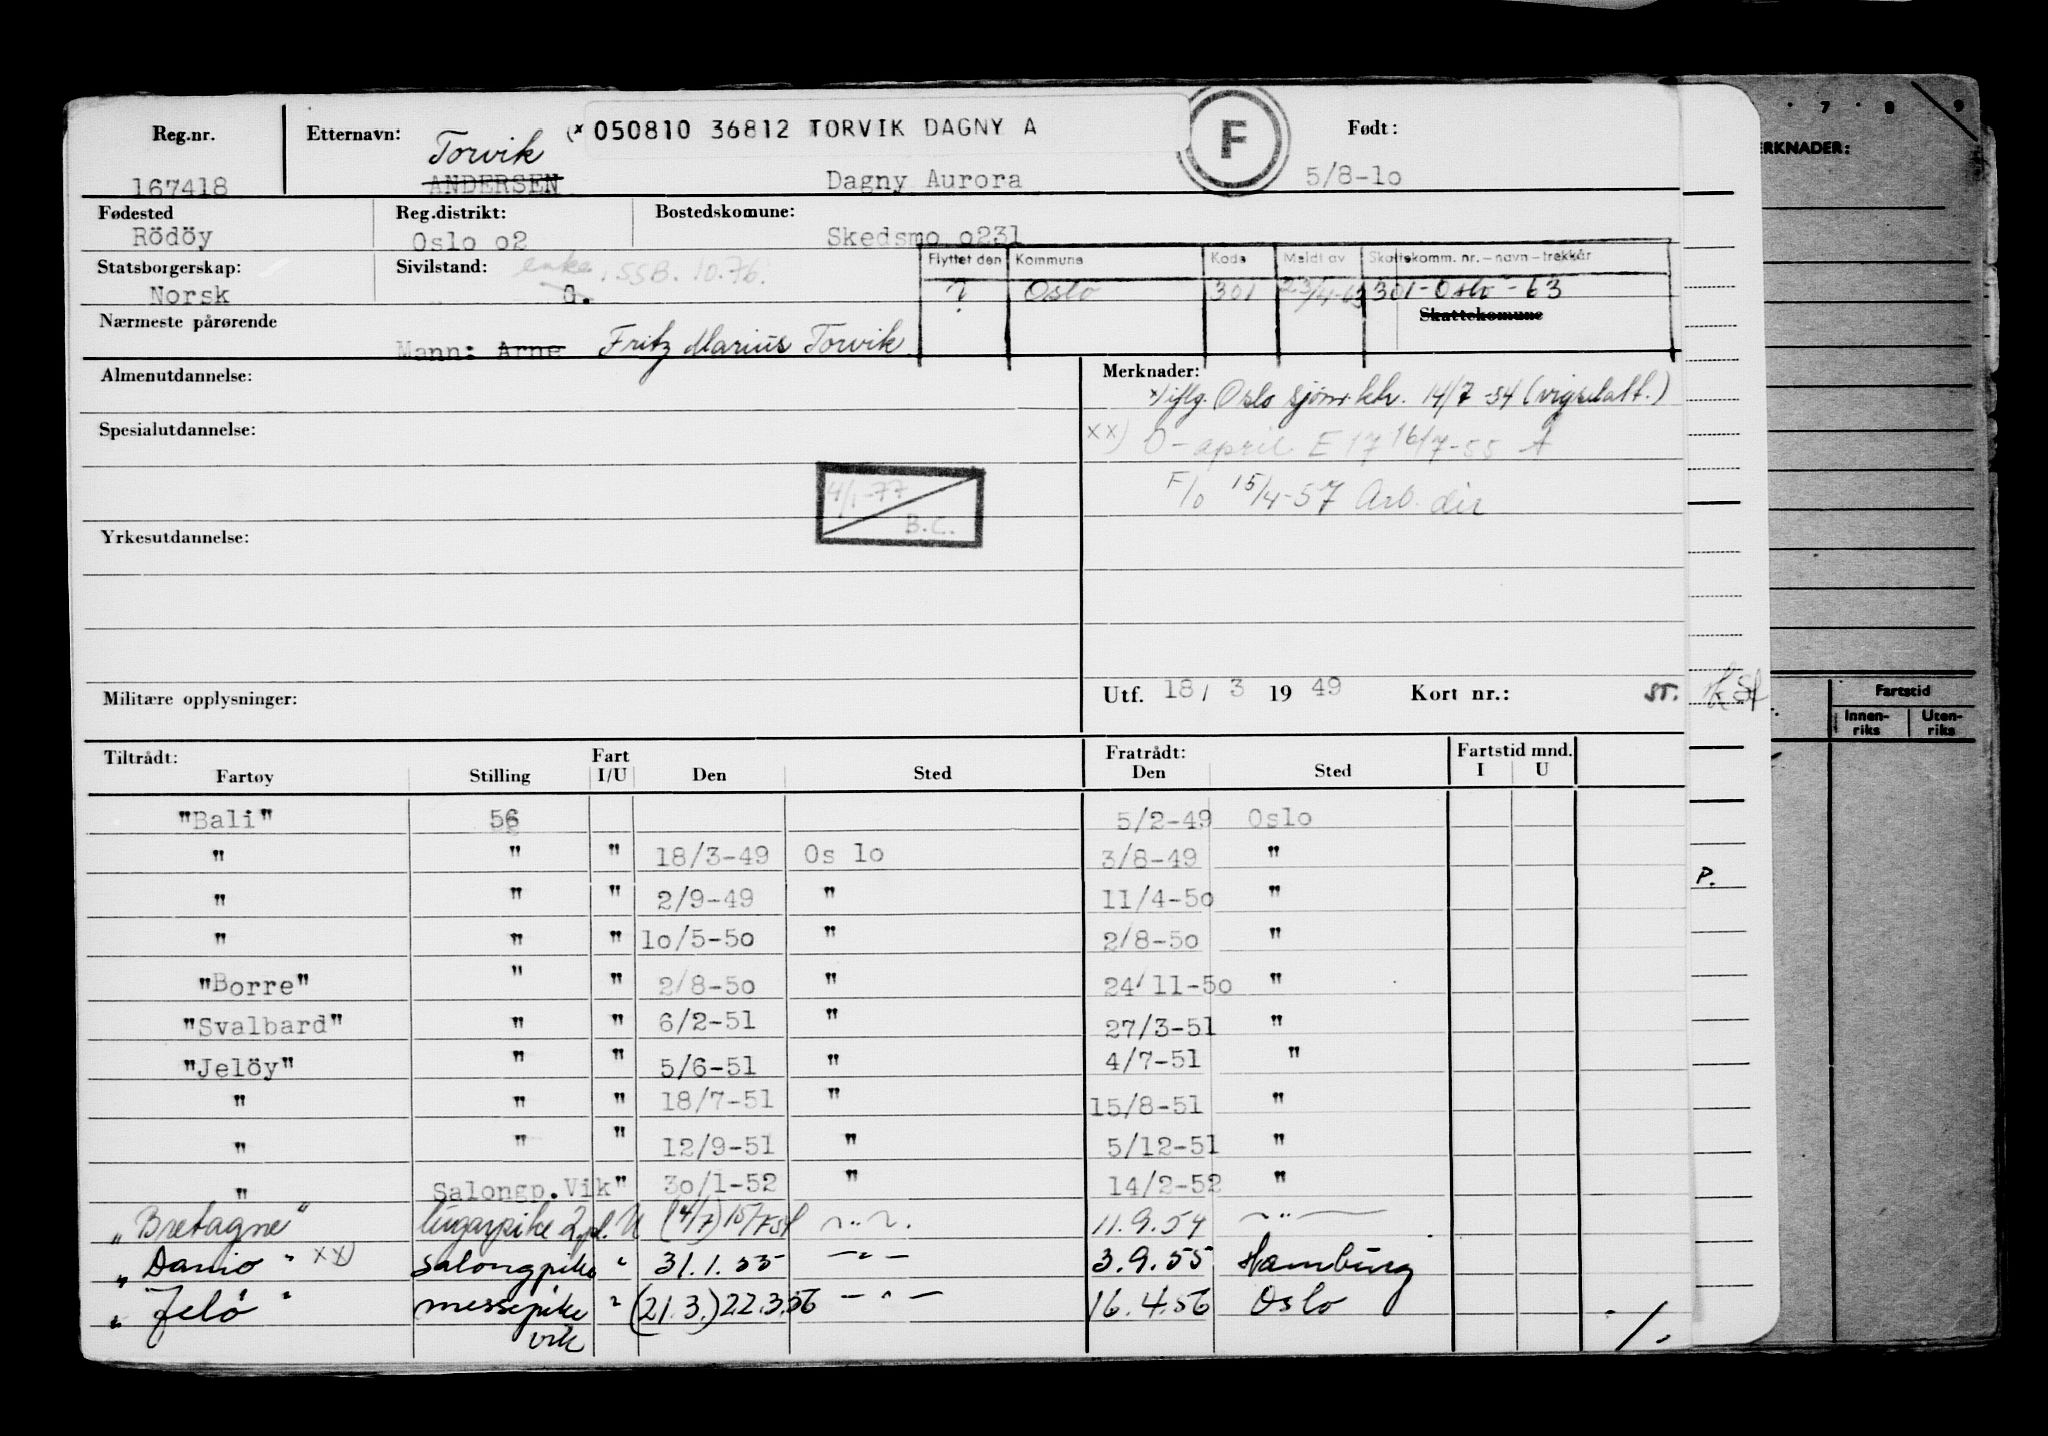 Reg.nr. Etternavn: (x 050810 36812 TORVIK DAGNY A F Født:
Torvik
167418 ANDERSEN Dagny Aurora 5/8-1o
Fødested Reg.distrikt: Bostedskomune:
Rödöy Oslo o2 Skedsmo o231
Statsborgerskap: Sivilstand: enke. SSB. 10.76. Flyttet den Kommune Kode Meldt av Skattekomm. nr. – navn – trekkår
Norsk G. ? Oslo 301 23/4-63 301 - Oslo - 63
Skattekomune
Nærmeste pårørende
Mann: Arne Fritz Marius Torvik
Almenutdannelse: Merknader:
x) iflg. Oslo sjöm.ktr. 14/7-54 (vigselatt.)
Spesialutdannelse: xx) O-april E 17 16/7-55 A
4/1-77 B.C. F/o 15/4-57 Arb. dir
Yrkesutdannelse:
Militære opplysninger: Utf. 18/ 3 19 49 Kort nr.: ST.
Tiltrådt: Fart Fratrådt: Fartstid mnd.
Fartøy Stilling I/U Den Sted Den Sted I U
"Bali" 56 5/2-49 Oslo
" " " 18/3-49 Os lo 3/8-49 "
" " " 2/9-49 " 11/4-5o "
" " " 1o/5-5o " 2/8-5o "
"Borre" " " 2/8-5o " 24/11-5o "
"Svalbard" " " 6/2-51 " 27/3-51 "
"Jelöy" " " 5/6-51 " 4/7-51 "
" " " 18/7-51 " 15/8-51 "
" " " 12/9-51 " 5/12-51 "
" Salongp.Vik " 3o/1-52 " 14/2-52 "
"Bretagne" lugarpike 2.pl. U (4/7) 15/7 54 — " — 11.9.54 — " —
"Danio" xx) salongpike " 31.1.55 — " — 3.9.55 Hamburg
"Jelö" messepike vik " (21.3.) 22.3.56 — " — 16.4.56 Oslo
./.
7 8 9
ERKNADER:
P.
Fartstid
Innen-riks Uten-riks